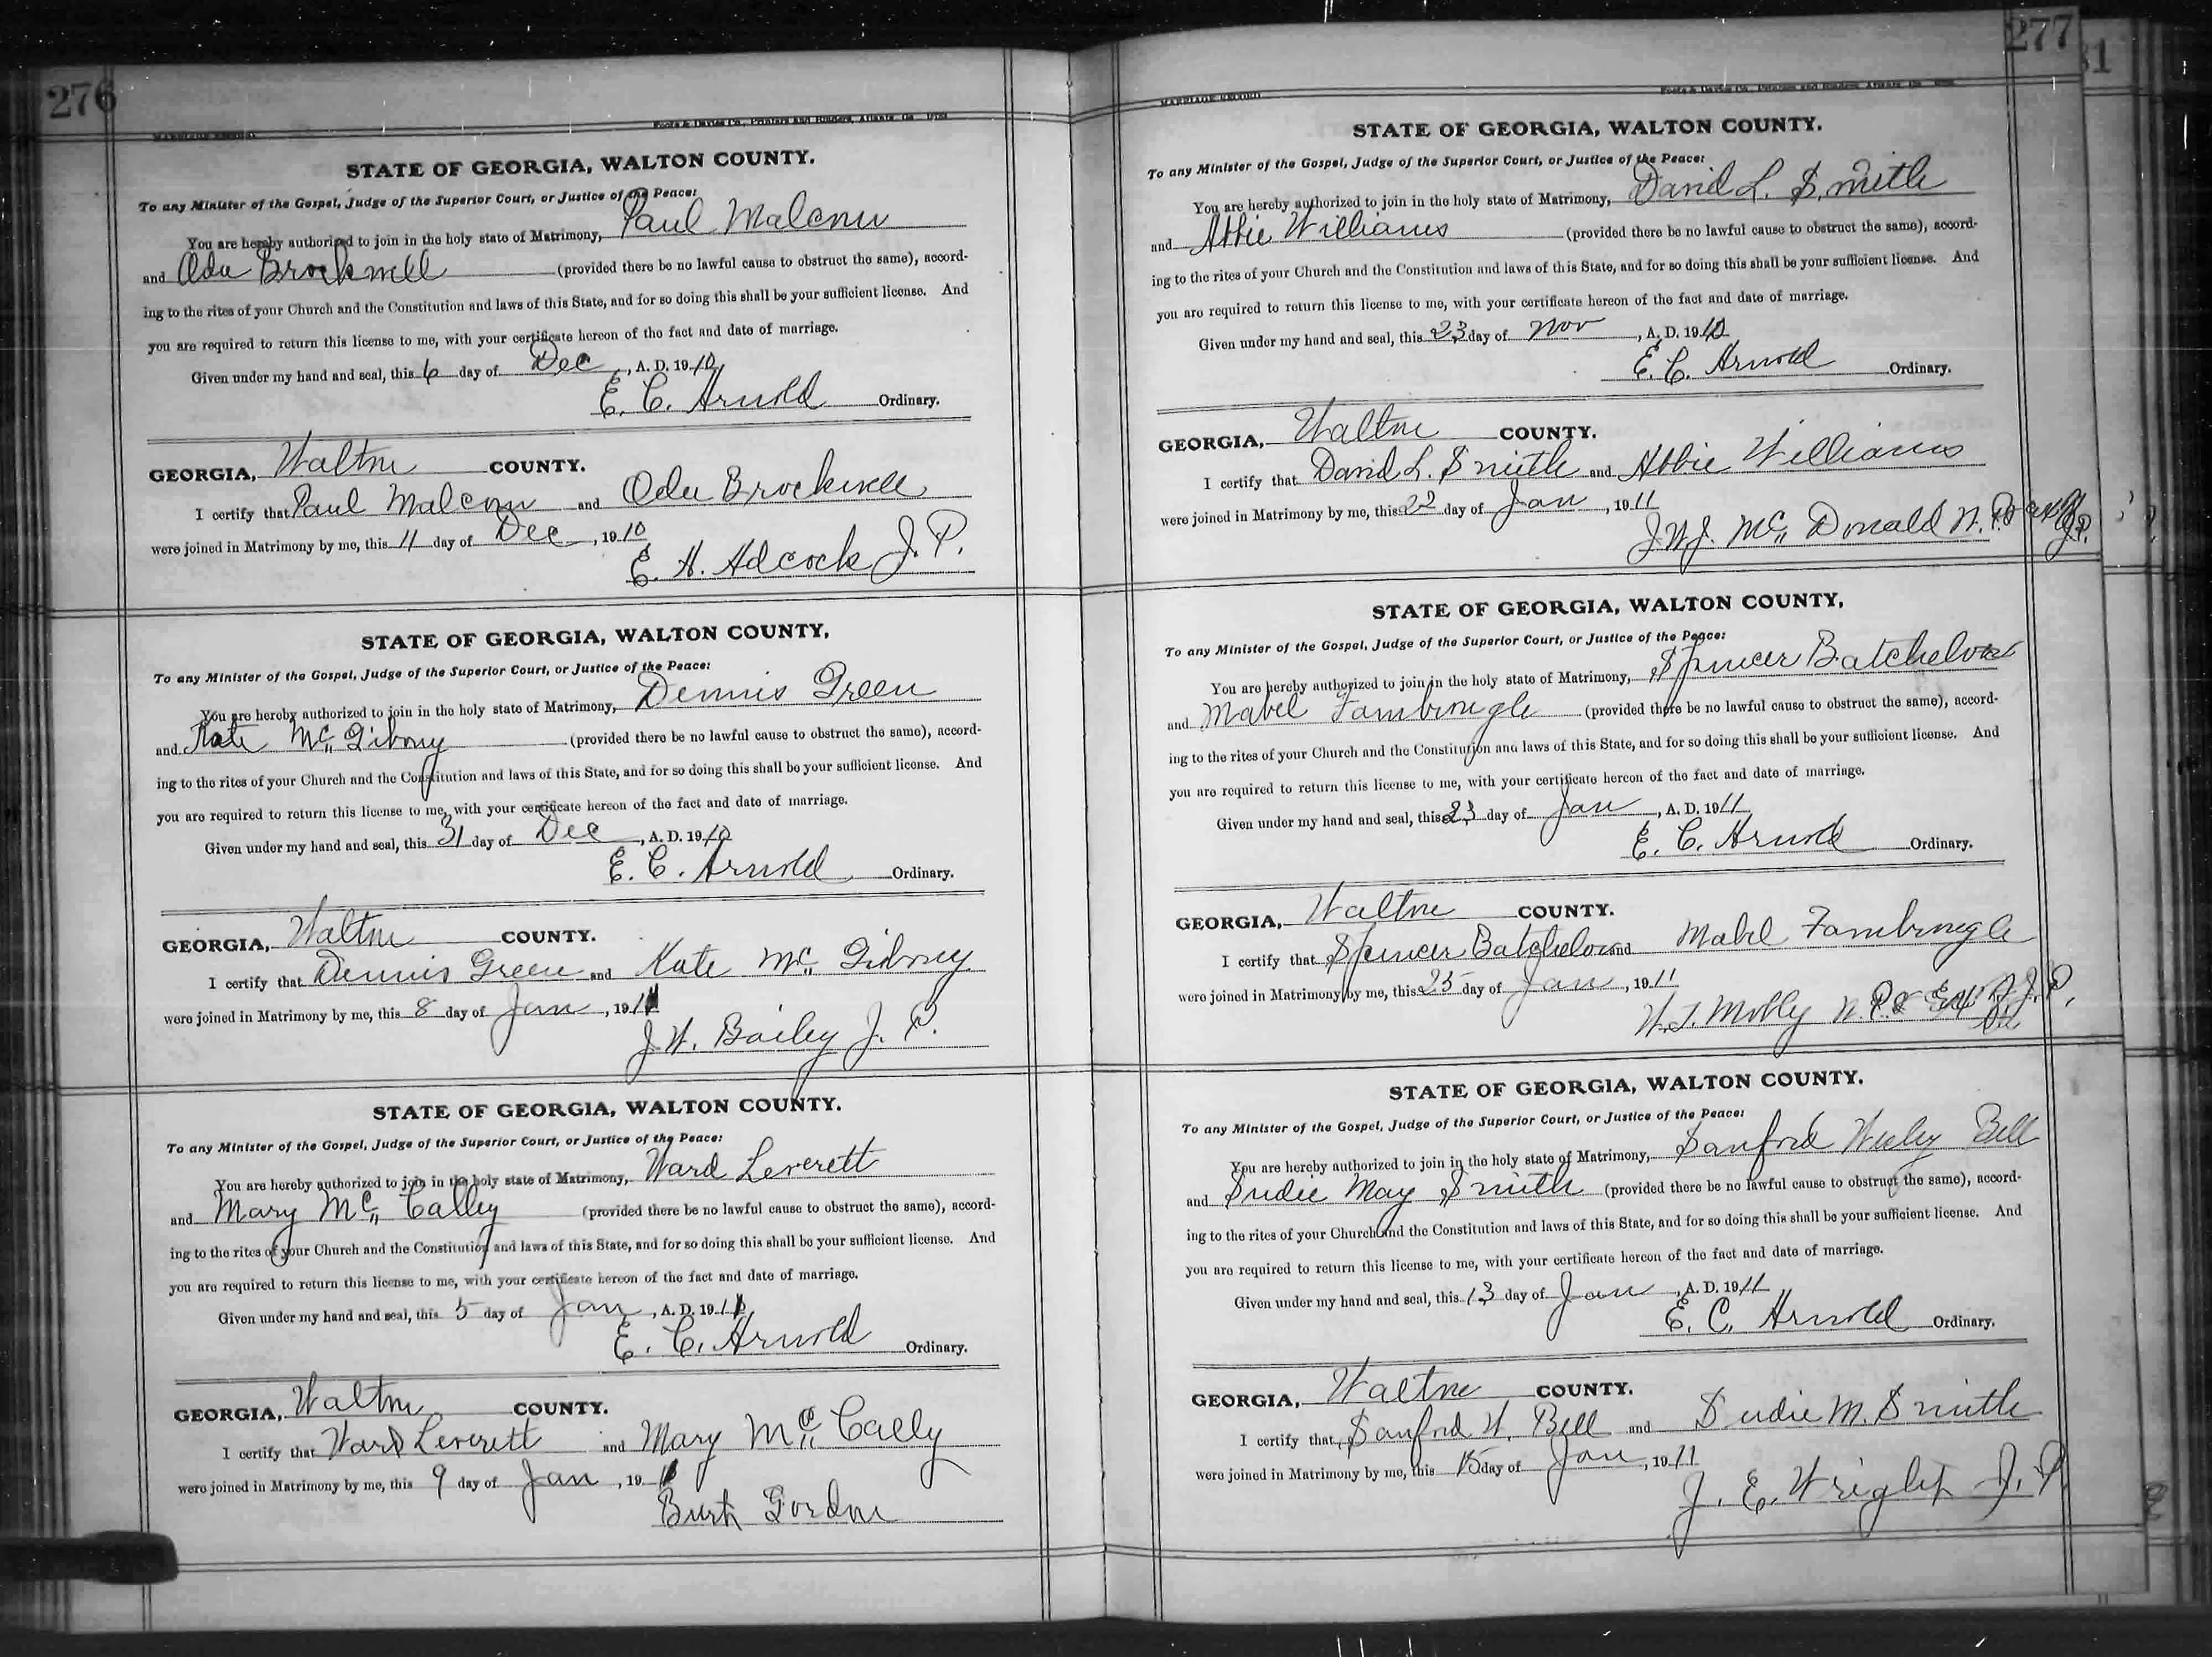 276
MARRIAGE RECORD
Foote & Davies Co., Printers and Binders, Atlanta, Ga.
STATE OF GEORGIA, WALTON COUNTY.
To any Minister of the Gospel, Judge of the Superior Court, or Justice of the Peace:
You are hereby authorized to join in the holy state of Matrimony, Paul Malcom
and Oda Brockwell (provided there be no lawful cause to obstruct the same), accord-
ing to the rites of your Church and the Constitution and laws of this State, and for so doing this shall be your sufficient license. And
you are required to return this license to me, with your certificate hereon of the fact and date of marriage.
Given under my hand and seal, this 6 day of Dec, A. D. 1910,
E. C. Arnold Ordinary.
GEORGIA, Walton COUNTY.
I certify that Paul Malcom and Oda Brockwell
were joined in Matrimony by me, this 11 day of Dec, 1910
E. H. Adcock J. P.
STATE OF GEORGIA, WALTON COUNTY,
To any Minister of the Gospel, Judge of the Superior Court, or Justice of the Peace:
You are hereby authorized to join in the holy state of Matrimony, Dennis Green
and Kate McGibony (provided there be no lawful cause to obstruct the same), accord-
ing to the rites of your Church and the Constitution and laws of this State, and for so doing this shall be your sufficient license. And
you are required to return this license to me, with your certificate hereon of the fact and date of marriage.
Given under my hand and seal, this 31 day of Dec, A. D. 1910
E. C. Arnold Ordinary.
GEORGIA, Walton COUNTY.
I certify that Dennis Green and Kate McGibney
were joined in Matrimony by me, this 8 day of Jan, 1911
J. W. Bailey J. P.
STATE OF GEORGIA, WALTON COUNTY.
To any Minister of the Gospel, Judge of the Superior Court, or Justice of the Peace:
You are hereby authorized to join in the holy state of Matrimony, Ward Leverett
and Mary McCalley (provided there be no lawful cause to obstruct the same), accord-
ing to the rites of your Church and the Constitution and laws of this State, and for so doing this shall be your sufficient license. And
you are required to return this license to me, with your certificate hereon of the fact and date of marriage.
Given under my hand and seal, this 5 day of Jan, A. D. 1911,
E. C. Arnold Ordinary.
GEORGIA, Walton COUNTY.
I certify that Ward Leverett and Mary McCally
were joined in Matrimony by me, this 9 day of Jan, 1911
Burt Gordon
277
31
MARRIAGE RECORD
Foote & Davies Co., Printers and Binders, Atlanta, Ga.
STATE OF GEORGIA, WALTON COUNTY.
To any Minister of the Gospel, Judge of the Superior Court, or Justice of the Peace:
You are hereby authorized to join in the holy state of Matrimony, David L. Smith
and Abbie Williams (provided there be no lawful cause to obstruct the same), accord-
ing to the rites of your Church and the Constitution and laws of this State, and for so doing this shall be your sufficient license. And
you are required to return this license to me, with your certificate hereon of the fact and date of marriage.
Given under my hand and seal, this 23 day of Nov, A. D. 1910
E. C. Arnold Ordinary.
GEORGIA, Walton COUNTY.
I certify that David L. Smith and Abbie Williams
were joined in Matrimony by me, this 22 day of Jan, 1911
J. W. J. McDonald N. P. & J.P.
STATE OF GEORGIA, WALTON COUNTY,
To any Minister of the Gospel, Judge of the Superior Court, or Justice of the Peace:
You are hereby authorized to join in the holy state of Matrimony, Spencer Batchelor
and Mabel Fambrugle (provided there be no lawful cause to obstruct the same), accord-
ing to the rites of your Church and the Constitution and laws of this State, and for so doing this shall be your sufficient license. And
you are required to return this license to me, with your certificate hereon of the fact and date of marriage.
Given under my hand and seal, this 23 day of Jan, A. D. 1911
E. C. Arnold Ordinary.
GEORGIA, Walton COUNTY.
I certify that Spencer Batchelor and Mabel Fambrugle
were joined in Matrimony by me, this 25 day of Jan, 1911
W. J. Mobly N. P. & Ex J. P.
STATE OF GEORGIA, WALTON COUNTY.
To any Minister of the Gospel, Judge of the Superior Court, or Justice of the Peace:
You are hereby authorized to join in the holy state of Matrimony, Sanford Wesley Bell
and Sudie May Smith (provided there be no lawful cause to obstruct the same), accord-
ing to the rites of your Church and the Constitution and laws of this State, and for so doing this shall be your sufficient license. And
you are required to return this license to me, with your certificate hereon of the fact and date of marriage.
Given under my hand and seal, this 13 day of Jan, A. D. 1911
E. C. Arnold Ordinary.
GEORGIA, Walton COUNTY.
I certify that Sanford W. Bell and Sudie M. Smith
were joined in Matrimony by me, this 15 day of Jan, 1911
J. E. Wright J. P.